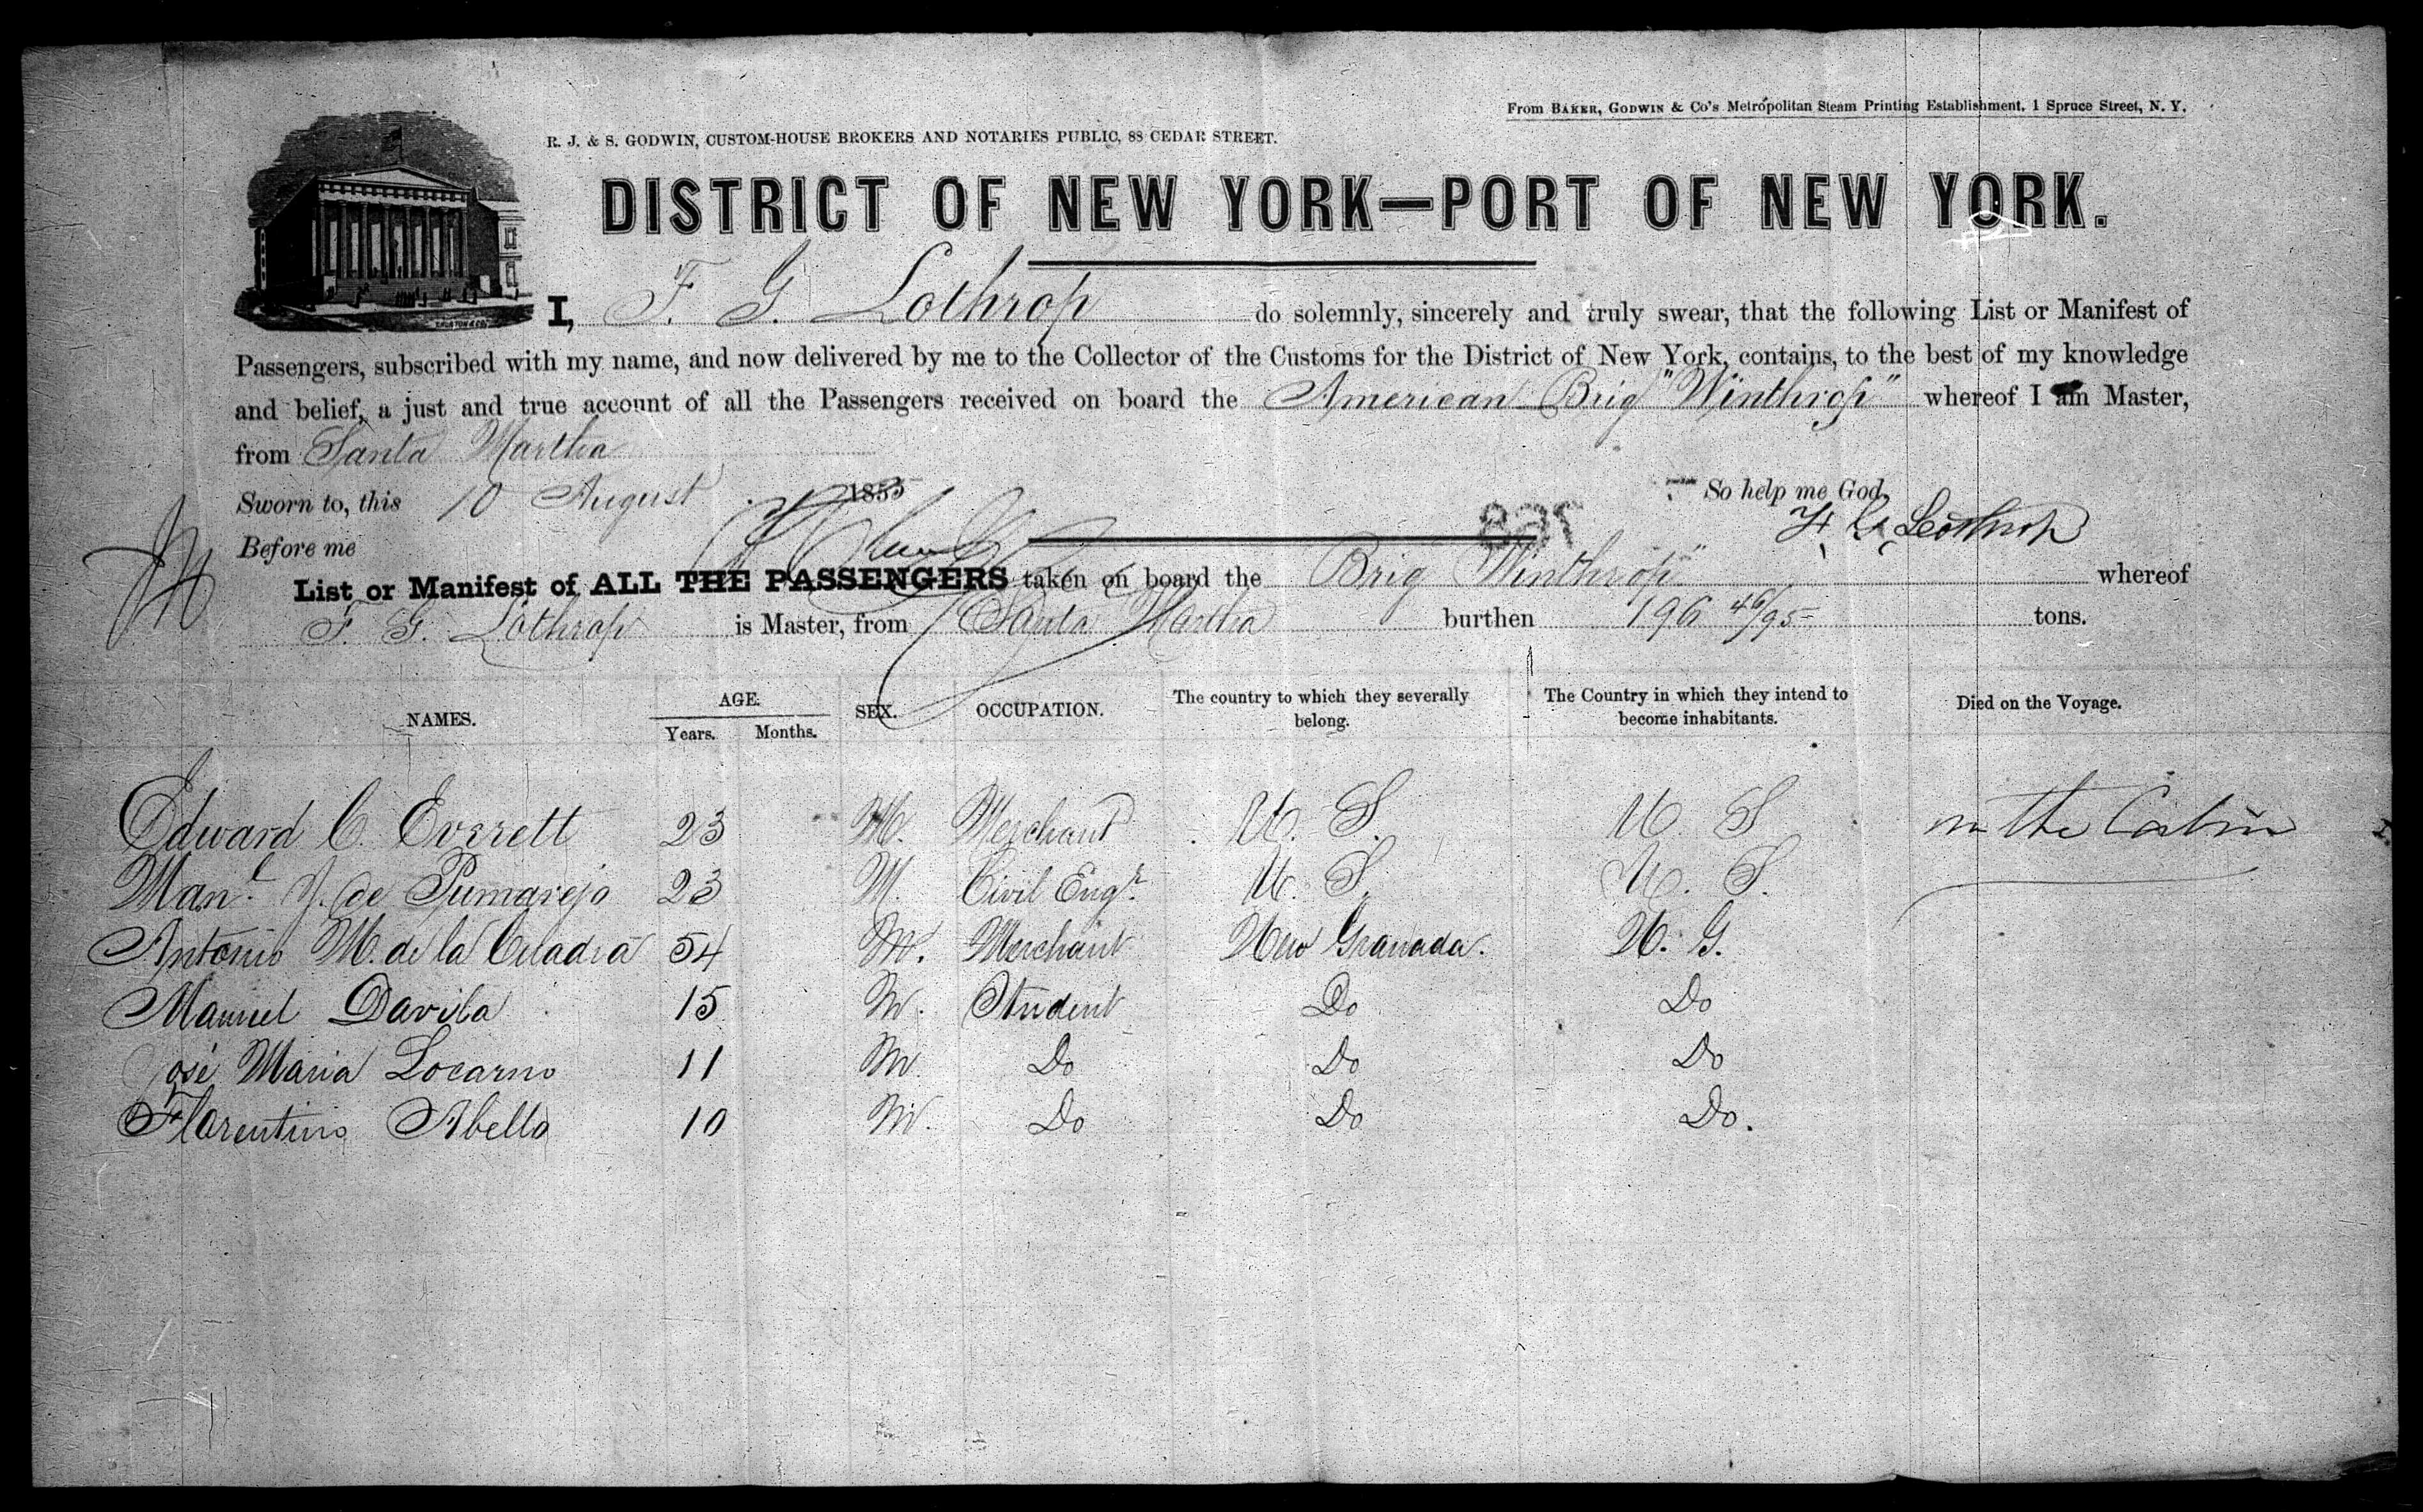 From BAKER, GODWIN & Co's Metropolitan Steam Printing Establishment, 1 Spruce Street, N. Y.
R. J. & S. GODWIN, CUSTOM-HOUSE BROKERS AND NOTARIES PUBLIC, 88 CEDAR STREET.
DISTRICT OF NEW YORK—PORT OF NEW YORK.
I, F. G. Lothrop do solemnly, sincerely and truly swear, that the following List or Manifest of
Passengers, subscribed with my name, and now delivered by me to the Collector of the Customs for the District of New York, contains, to the best of my knowledge
and belief, a just and true account of all the Passengers received on board the American Brig "Winthrop" whereof I am Master,
from Santa Martha
Sworn to, this 10 August 1855 So help me God.
F. G. Lothrop
Before me
List or Manifest of ALL THE PASSENGERS taken on board the Brig Winthrop" whereof
F. G. Lothrop is Master, from Santa Martha burthen 196 46/95 tons.
NAMES. AGE. Years. Months. SEX. OCCUPATION. The country to which they severally belong. The Country in which they intend to become inhabitants. Died on the Voyage.
Edward C. Everett 23 M. Merchant U. S. U S in the Cabin
Manl. J. de Pumarejo 23 M. Civil Engr. U. S. U. S.
Antonio M. de la Cuadra 54 M. Merchant New Granada. N. G.
Manuel Davila 15 M. Student Do Do
José Maria Locarno 11 M. Do Do Do
Florentino Abello 10 M. Do Do Do.